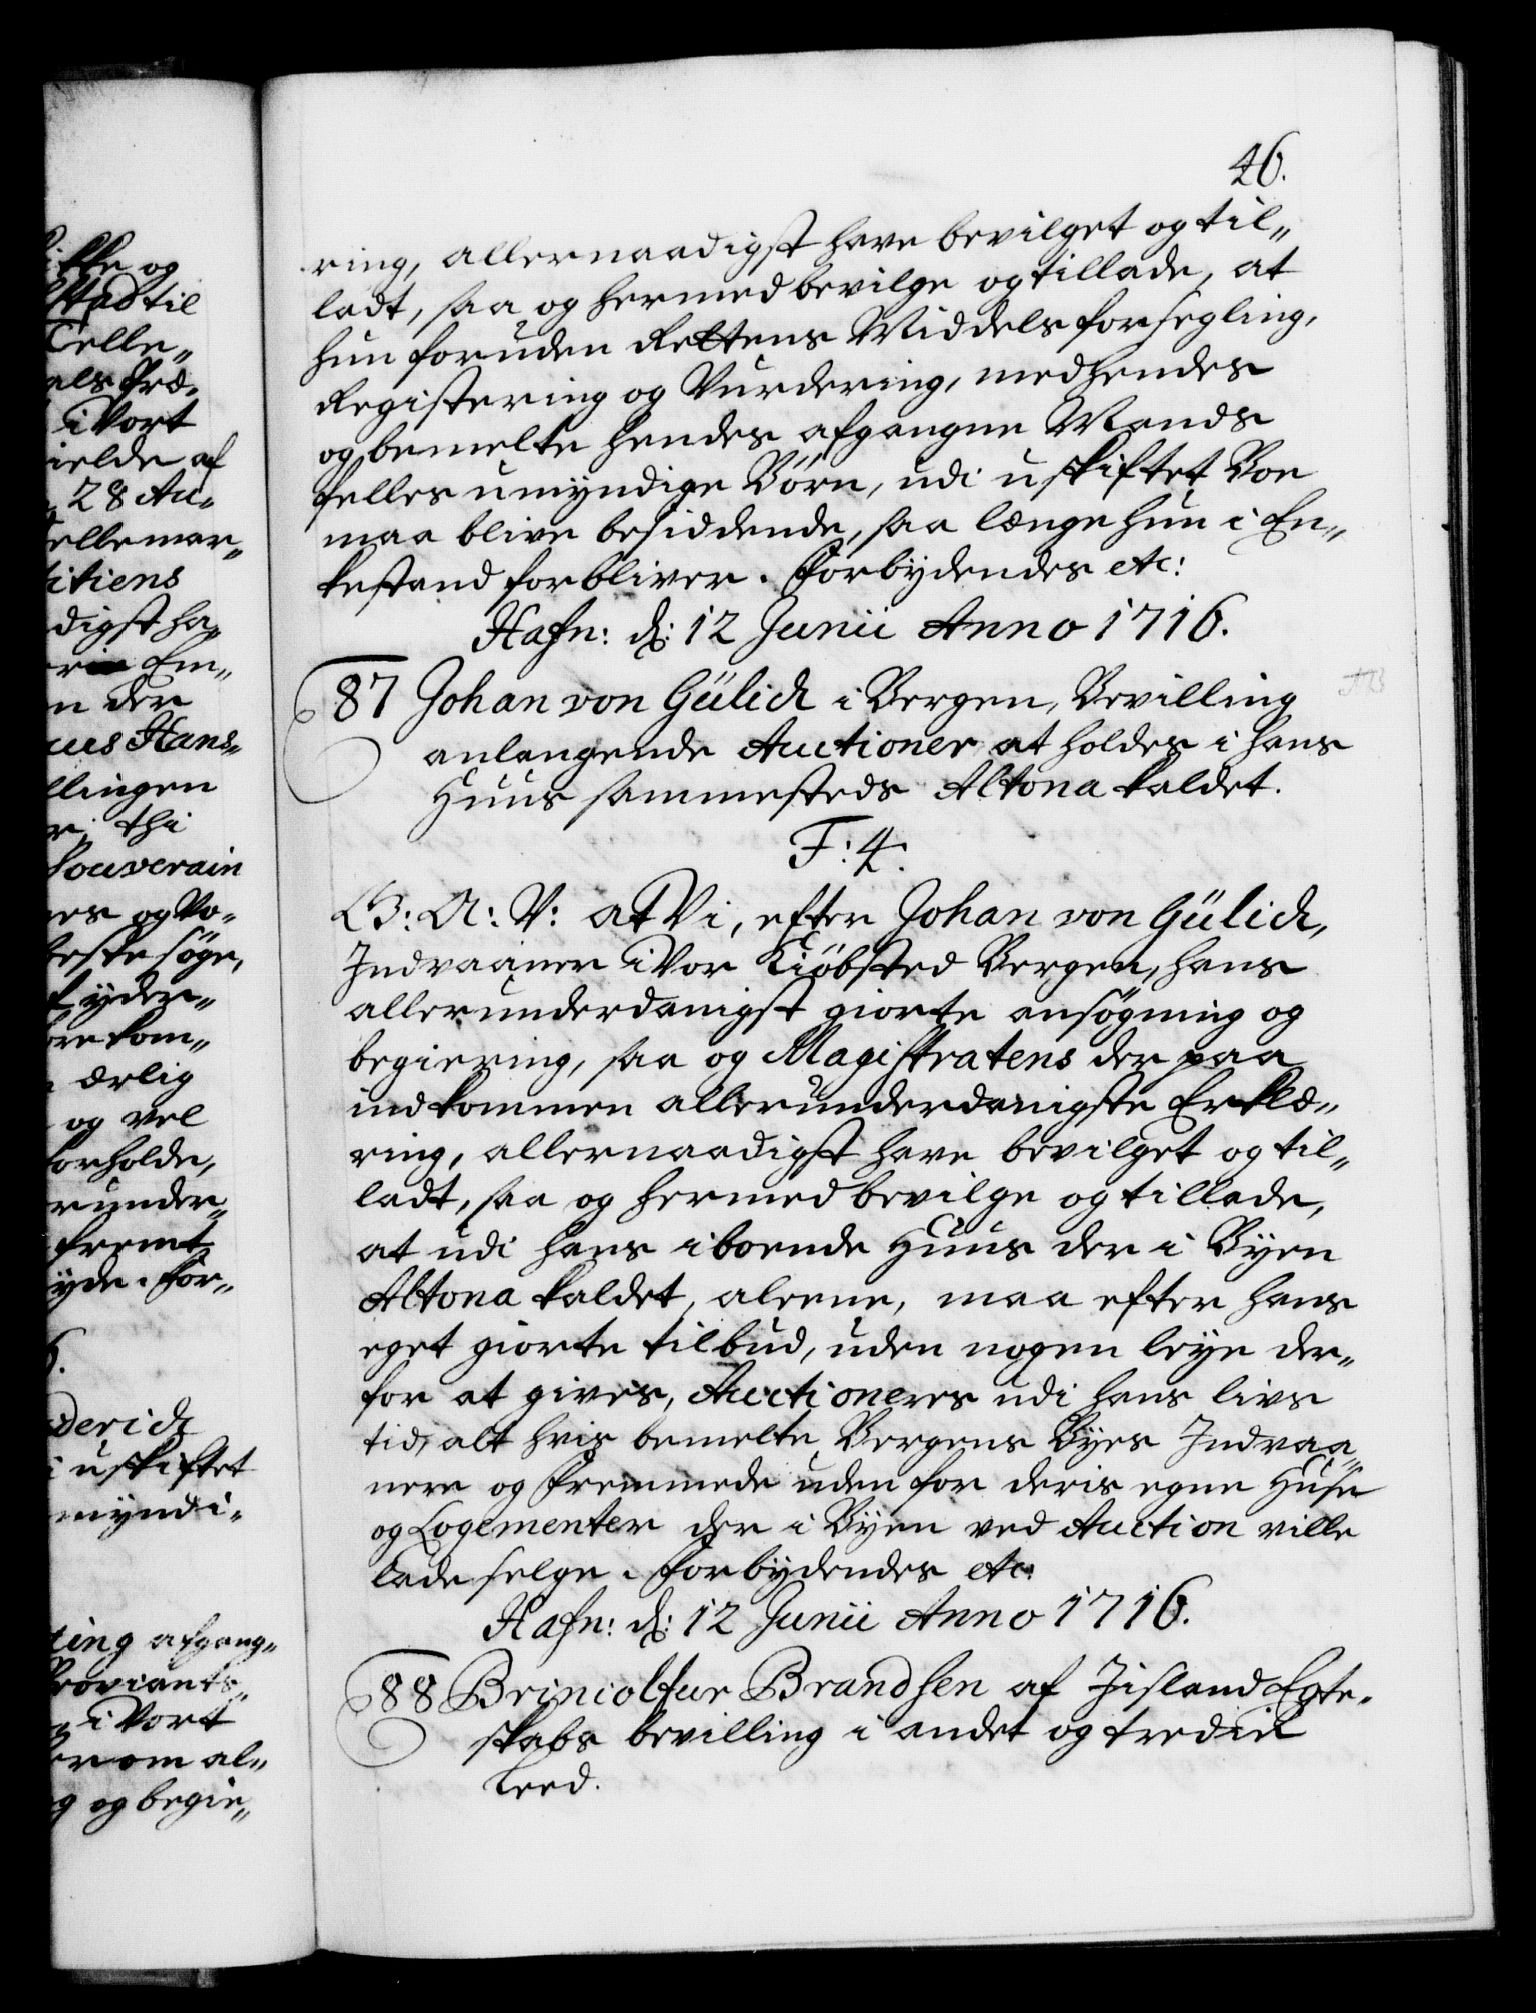 46.
ring, allernaadigst have bevilget og til„
ladt, saa og hermed bevilge og tillade, at
hun foruden Rettens Middels forsegling,
Registering og Vurdering, med hendes
og bemelte hendes afgangne Mands
felles umyndige Børn, udi uskiftet Boe
maa blive besiddende, saa længe hun i En„
kestand forbliver. Forbydendes etc:
Hafn: d: 12 Junii Anno 1716.
87 Johan von Gülich i Bergen, Bevilling
anlangende Auctioner at holdes i hans
Huus sammesteds Altona kaldet.
F: 4.
G: A: V: at Vi, efter Johan von Gülich,
Indvaaner i Vor Kiøbsted Bergen, hans
allerunderdanigst giorte ansøgning og
begiering, saa og Magistratens der paa
indkommen allerunderdanigste Erklæ„
ring, allernaadigst have bevilget og til„
ladt, saa og hermed bevilge og tillade,
at udi hans iboende Huus der i Byen
Altona kaldet, aleene, maa efter hans
eget giorte tilbud, uden nogen leye der„
for at gives, Auctioneres udi hans livs
tid, alt hvis bemelte Bergens Byes Indvaa„
nere og Fremmede uden for deris egne Huse
og Logementer der i Byen ved Auction ville
lade selge. Forbydendes etc:
Hafn: d: 12 Junii Anno 1716.
88 Briniolfur Brandsen af Iisland Egte„
skabs bevilling i andet og tredie
Leed.
ikke og
stad til
Telle„
als Præ„
i Vort
ielde af
28 Au„
ellemar„
itiens
digst ha„
Em„
n der
us Hans„
llingen
r, thi
Souverain
es og Vo„
este søge,
yder„
ore kom„
ærlig
og vel
forholde,
runder„
fremt
yde. For„
6.
derich
i uskiftet
myndi„
ting afgang„
Proviants„
i Vort
er om al„
g og begie„